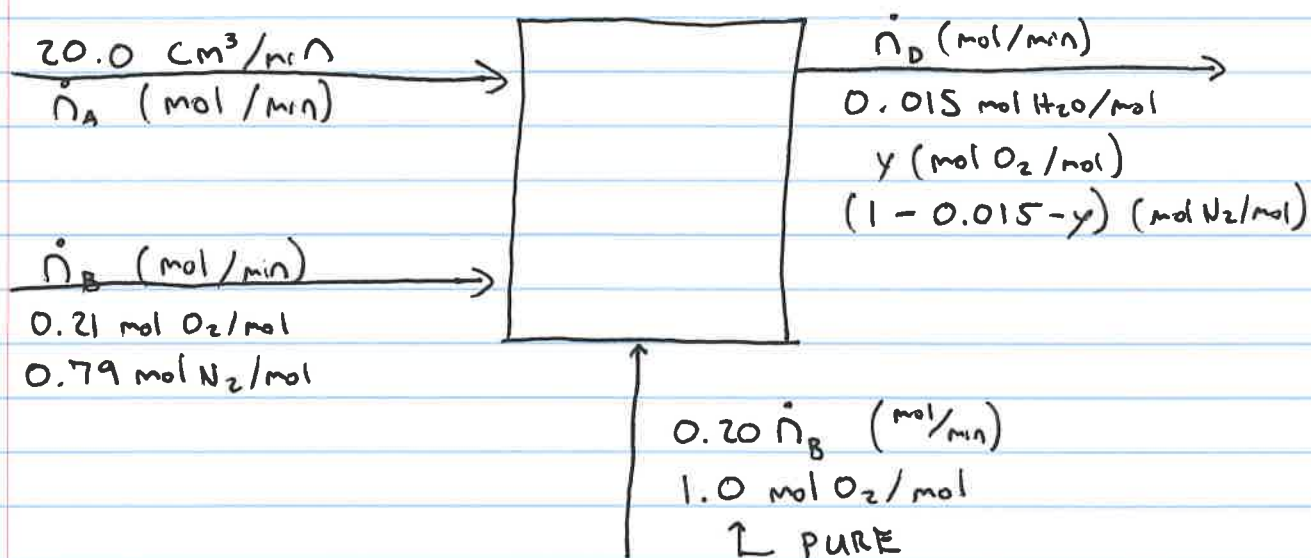 20.0 cm³/min
ṅA (mol/min)
ṅB (mol/min)
0.21 mol O₂/mol
0.79 mol N₂/mol
ṅD (mol/min)
0.015 mol H₂O/mol
y (mol O₂/mol)
(1 - 0.015 - y) (mol N₂/mol)
0.20 ṅB (mol/min)
1.0 mol O₂/mol
↑ PURE